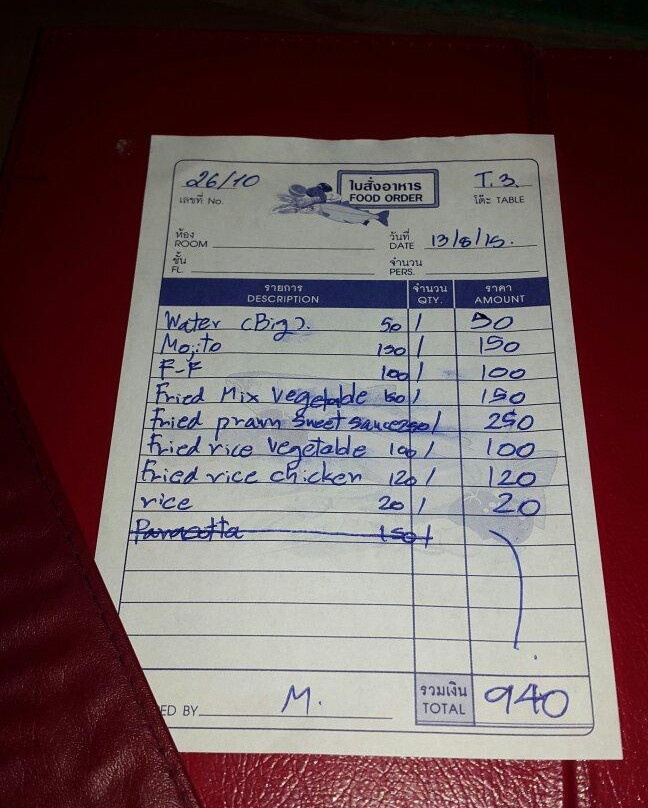 26/10 ใบสั่งอาหาร T. 3.
เลขที่ No. FOOD ORDER โต๊ะ TABLE
ห้อง วันที่
ROOM DATE 13/8/15.
ชั้น จำนวน
FL. PERS.
รายการ จำนวน ราคา
DESCRIPTION QTY. AMOUNT
Water (Big). 50 / 50
Mojito 150 / 150
F-F 100 / 100
Fried Mix Vegetable 150 / 150
Fried prawn sweet sauce 250 / 250
Fried rice vegetable 100 / 100
Fried rice chicken 120 / 120
rice 20 / 20
Panacotta 150 /
รวมเงิน
ED BY M. TOTAL 940